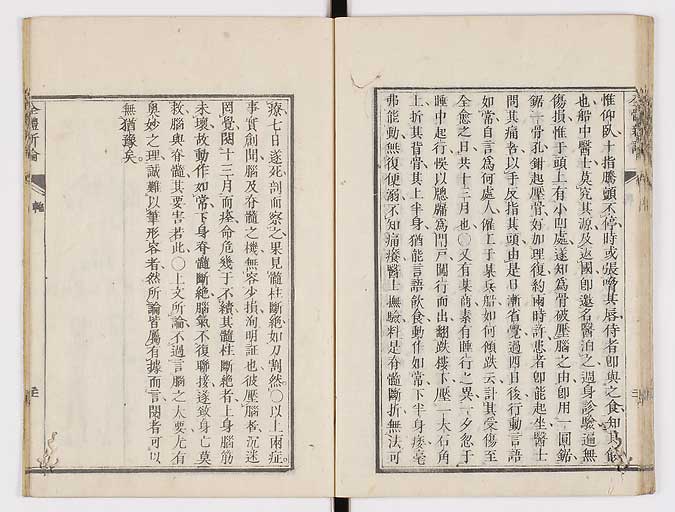 惟仰臥、十指騰顫不停、時或張噏其唇、侍者卽與之食、知其飢
也、船中醫士、莫究其源、及返國卽邀名醫治之、遍身診驗、遍無
傷損、惟于頭上有小凹處、遂知為骨破壓腦之由、卽用一圓鋸、
鋸一骨孔、鉗起壓骨、好加理復、約兩時許、患者卽能起坐、醫士
問其痛否、以手反指其頭、由是日漸省覺、過四日後、行動言語
如常、自言為何處人、傭工于某兵船、如何傾跌云、計其受傷至
全愈之日、共十三月也、〇又有某商、素有睡行之異、一夕忽于
睡中起行、悞以牕牖為門戶、闖行而出、翻跌樓下、壓一大石角
上、折其背骨、其上半身、猶能言語飲食動作如常、下半身痿毫
弗能動、無復便溺、不知痛癢、醫士撫驗、料是脊髓斷折、無法可
療、七日遂死、剖而察之、果見髓柱斷絕、如刀割然、〇以上兩症。
事實創聞、腦及脊髓之機、無容少損、洵明証也、彼壓腦者、沉迷
罔覺、閱十三月而痊、命危幾于不續、其髓柱斷絕者、上身腦筋
未壞、故動作如常、下身脊髓斷絕、腦氣不復聯接、遂致身亡、莫
救、腦與脊髓、其要害若此、〇上文所論、不過言腦之大要、尤有
奧妙之理、誠難以筆形容者、然所論皆屬有據而言、閱者可以
無猶豫矣。
全體新論